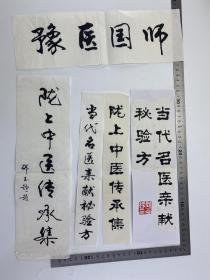 豫医国师
陇上中医传承集
当代名医亲献秘验方
陇上中医传承集
当代名医亲献
秘验方